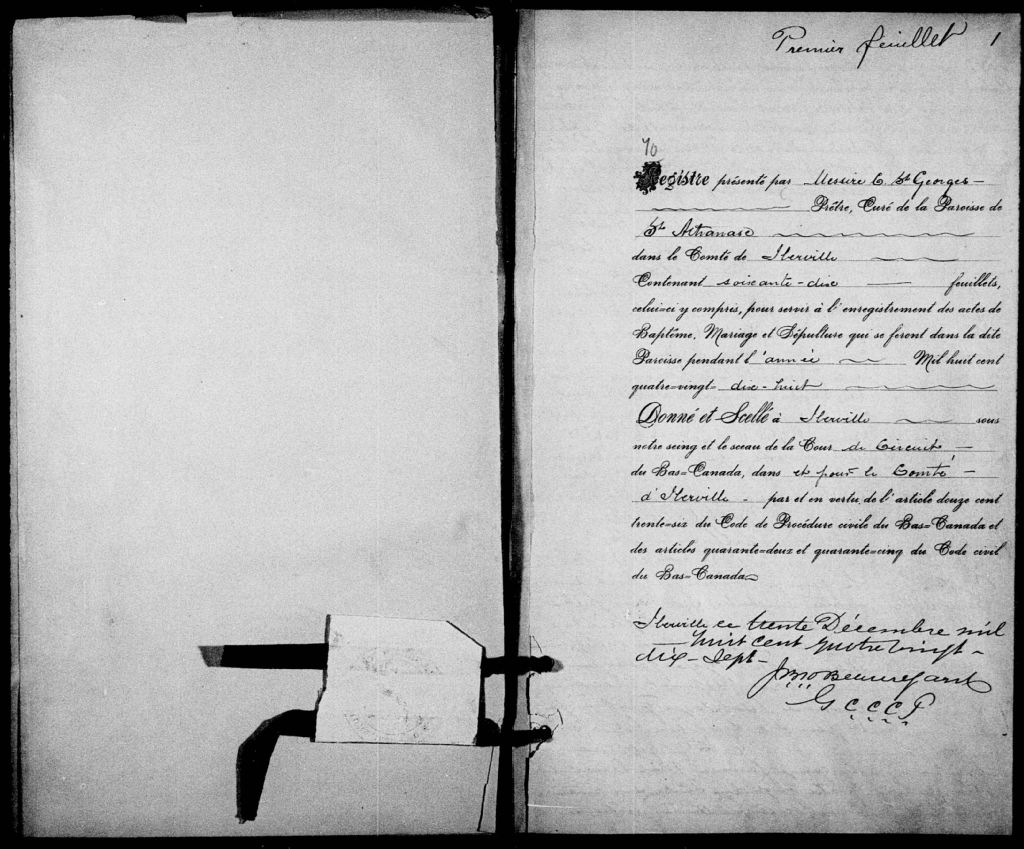 Premier feuillet 1
70
Registre présenté par Messire C St Georges
Prêtre, Curé de la Paroisse de
St Athanase
dans le Comté de Iberville
Contenant soixante-dix feuillets,
celui=ci y compris, pour servir à l'enregistrement des actes de
Baptême, Mariage et Sépulture qui se feront dans la dite
Paroisse pendant l'année Mil huit cent
quatre=vingt= dix-huit
Donné et Scellé à Iberville sous
notre seing et le sceau de la Cour de Circuit
du Bas=Canada, dans et pour le Comté
d'Iberville par et en vertu de l'article douze cent
trente=six du Code de Procédure civile du Bas=Canada et
des articles quarante=deux et quarante=cinq du Code civil
du Bas=Canada
Iberville ce trente Décembre mil
huit cent quatre vingt-
dix-sept-
Beauregard
G C C C P